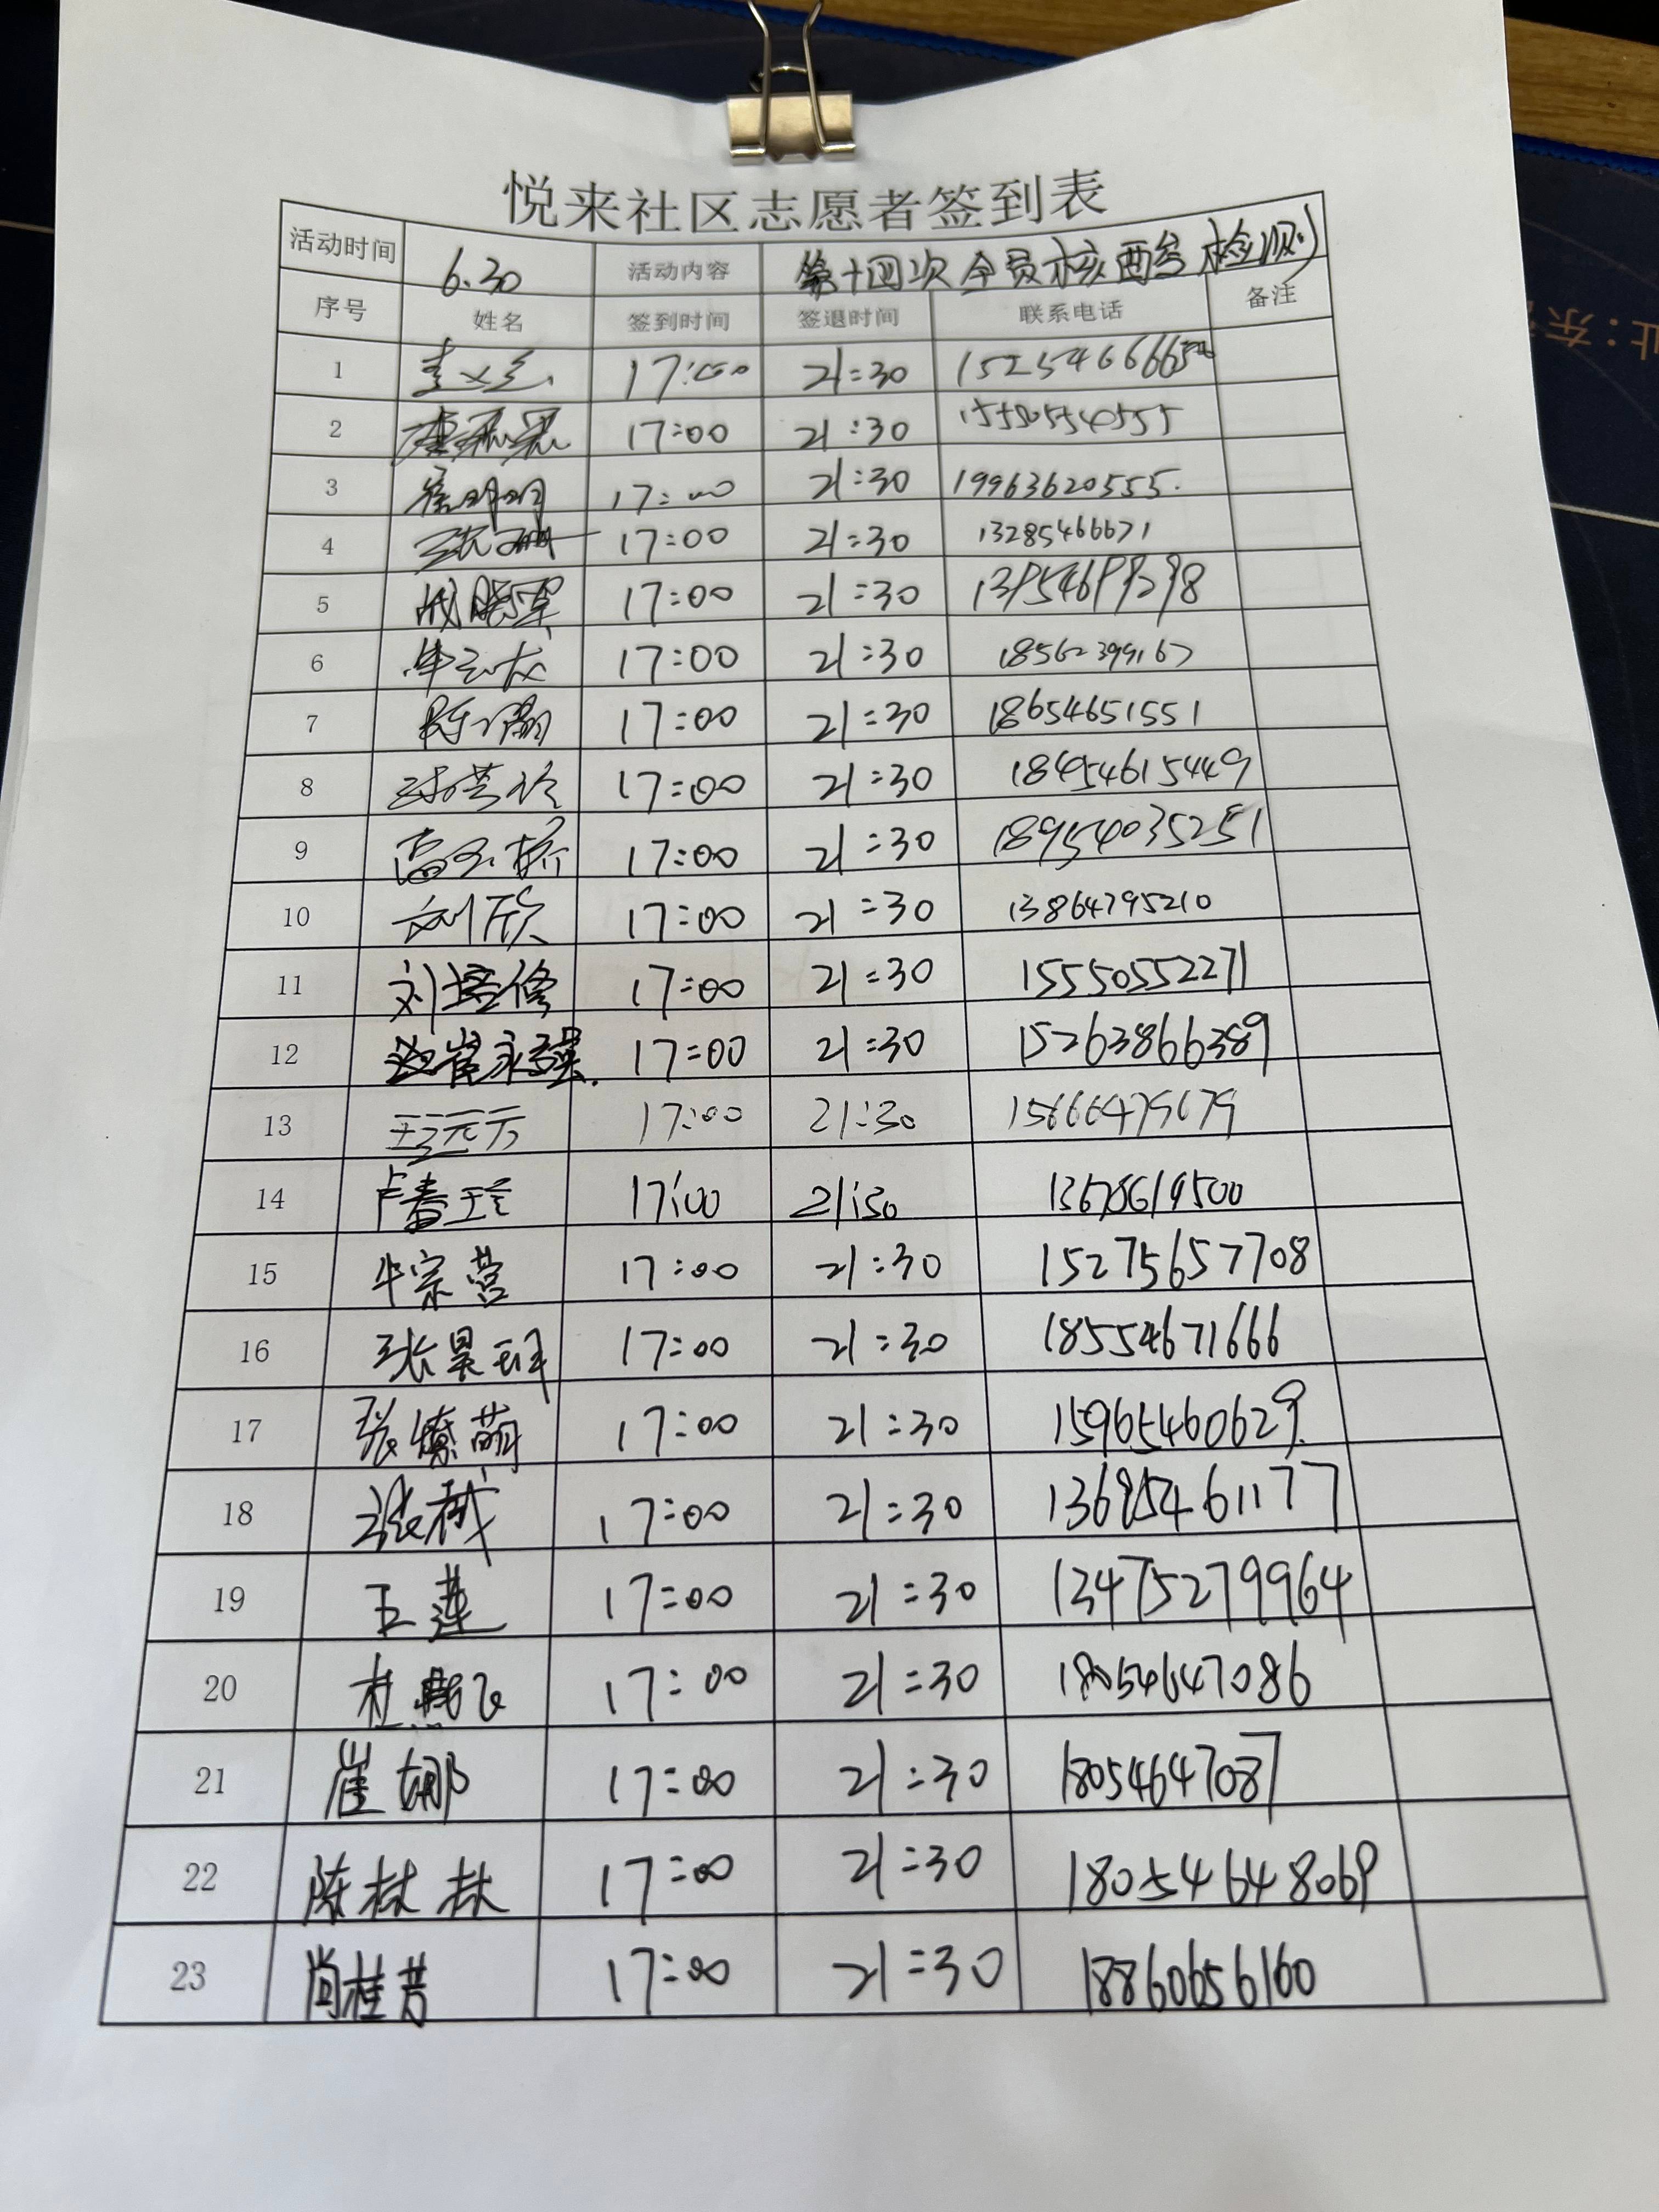 悦来社区志愿者签到表
活动时间 6.30 活动内容 第十四次全员核酸检测
序号 姓名 签到时间 签退时间 联系电话 备注
1 17:00 21:30
2 17:00 21:30 15505540555
3 崔明明 17:00 21:30 19963620555.
4 张珊 17:00 21:30 13285466671
5 17:00 21:30 13954699298
6 17:00 21:30 18562399167
7 17:00 21:30 18654651551
8 17:00 21:30 18454615449
9 17:00 21:30 18954035251
10 刘欣 17:00 21:30 13864795210
11 刘培修 17:00 21:30 15550552271
12 崔永强. 17:00 21:30 15263866389
13 王元元 17:00 21:30 15866479679
14 卢春玲 17:00 21:30 13678619500
15 牛宗营 17:00 21:30 15275657708
16 张昊珵 17:00 21:30 18554671666
17 张燎萌 17:00 21:30 15965460629.
18 张械 17:00 21:30 13685461177
19 王莲 17:00 21:30 13475279964
20 杜燕飞 17:00 21:30 18054647086
21 崔娜 17:00 21:30 18054647087
22 陈林林 17:00 21:30 18054648069
23 尚桂芳 17:00 21:30 18860656160
址：东